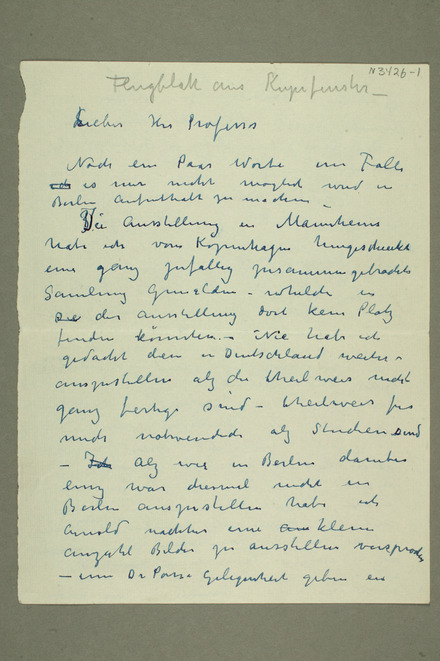 N 3426-1
Flugblatt aus Kupferfenster –
Lieber Herr Professor
Noch ein Paar Worte im Falle
es mir nicht möglich wird in
Berlin Aufenthalt zu machen –
Die Ausstellung in Mannheim
habe ich von Kopenhagen hingeschickt
eine ganz zufällig zusammengebrachte
Samlung Gemälden –
die der Ausstellung dort kein Platz
finden könnten. – Nie habe ich
gedacht dem in Deutschland weiter
auszustellen als die theilweis nicht
ganz fertige sind – theilweis für
mich notwendich als Studien sind
– Ich Als wir in Berlin darüber
einig war diesmal nicht in
Berlin auszustellen habe ich
Arnold nachher eine kleine
anzahl Bilder zu ausstellen versprochen
– um Dr Posse Gelegenheit geben ein